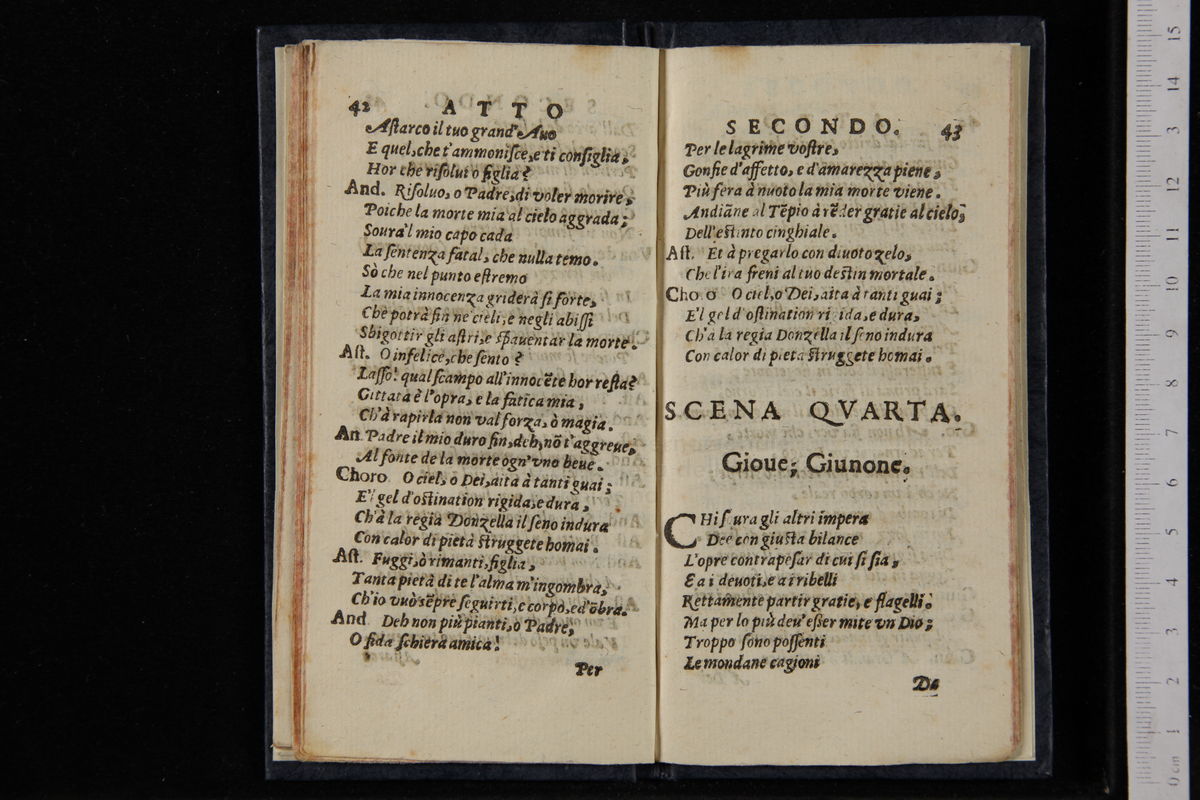 42 ATTO
Aſtarco il tuo grand' Auo
E quel, che t'ammoniſce, e ti conſiglia,
Hor che riſolui o figlia?
And. Riſoluo, o Padre, di voler morire,
Poiche la morte mia al cielo aggrada;
Soura'l mio capo cada
La ſentenza fatal, che nulla temo.
Sò che nel punto eſtremo
La mia innocenza griderà ſi forte,
Che potrà fin ne cieli, e negli abiſſi
Sbigottir gli aſtri, e ſpauentar la morte.
Aſt. O infelice, che ſento?
Laſſo! qual ſcampo all'innocẽte hor reſta?
Gittata è l'opra, e la fatica mia,
Ch'à rapirla non val forza, ò magia.
An. Padre il mio duro fin, deh, nõ t'aggreue,
Al fonte de la morte ogn'vno beue.
Choro O ciel, o Dei, aita à tanti guai;
E'l gel d'oſtination rigida, e dura,
Ch'à la regia Donzella il ſeno indura
Con calor di pietà ſtruggete homai.
Aſt. Fuggi, ò rimanti, figlia,
Tanta pietà di te l'alma m'ingombra,
Ch'io vuò sẽpre ſeguirti, e corpo, ed'õbra.
And. Deh non più pianti, o Padre,
O fida ſchiera amica!
Per
SECONDO. 43
Per le lagrime voſtre,
Gonfie d'affetto, e d'amarezza piene,
Più fera à nuoto la mia morte viene.
Andiãne al Tẽpio à rẽder gratie al cielo,
Dell'eſtinto cinghiale.
Aſt. Et à pregarlo con diuoto zelo,
Che l'ira freni al tuo deſtin mortale.
Choro O ciel, o Dei, aita à tanti guai;
E'l gel d'oſtination rigida, e dura,
Ch'à la regia Donzella il ſeno indura
Con calor di pietà ſtruggete homai.
SCENA QVARTA.
Gioue; Giunone.
CHi ſura gli altri impera
Dee con giuſta bilance
L'opre contrapeſar di cui ſi ſia,
E a i deuoti, e a i ribelli
Rettamente partir gratie, e flagelli.
Ma per lo più deu'eſſer mite vn Dio;
Troppo ſono poſſenti
Le mondane cagioni
Da
0 cm 1 2 3 4 5 6 7 8 9 10 11 12 13 14 15